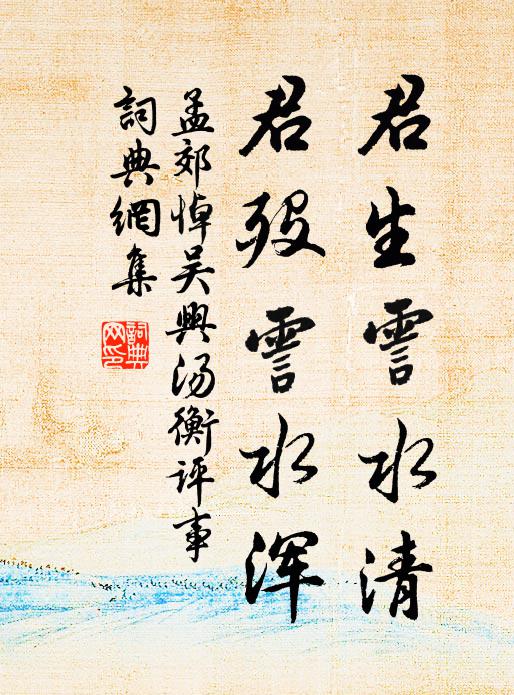 君生霅水清
君殁霅水浑
孟郊悼吴興汤衡评事
詞典網集
詞典网印